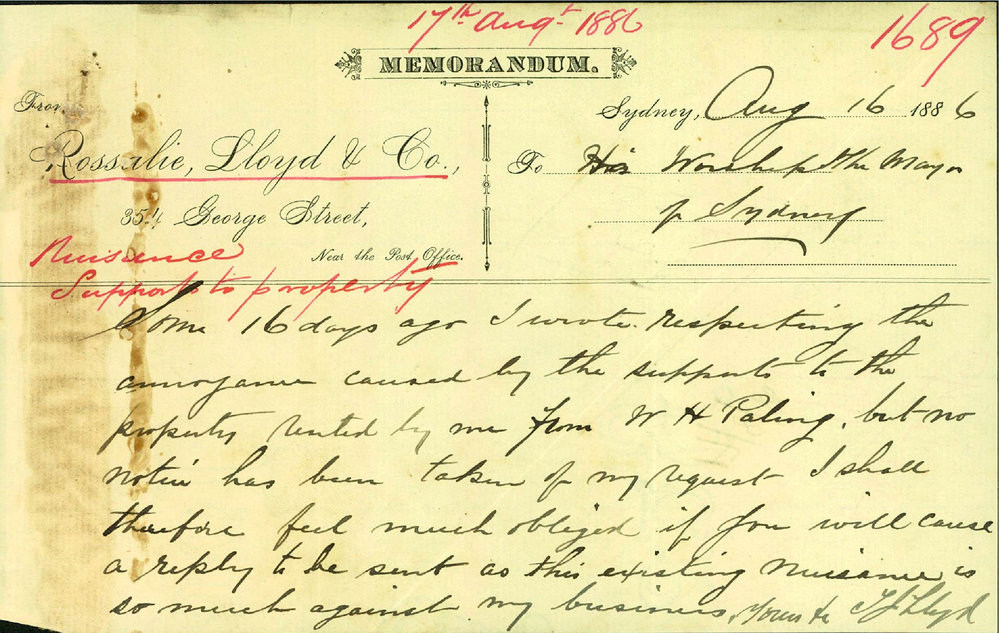 17th Augt 1886
1689
MEMORANDUM.
From
Rossalie, Lloyd & Co.,
354 George Street,
Near the Post Office.
Sydney, Aug 16 1886
To His Worship the Mayor
of Sydney
Nuisance
Supports to property
Some 16 days ago I wrote respecting the
annoyance caused by the supports to the
property rented by me from W H Paling, but no
notice has been taken of my request I shall
therefore feel much obliged if you will cause
a reply to be sent as this existing nuisance is
so much against my business, Yours &c Lloyd